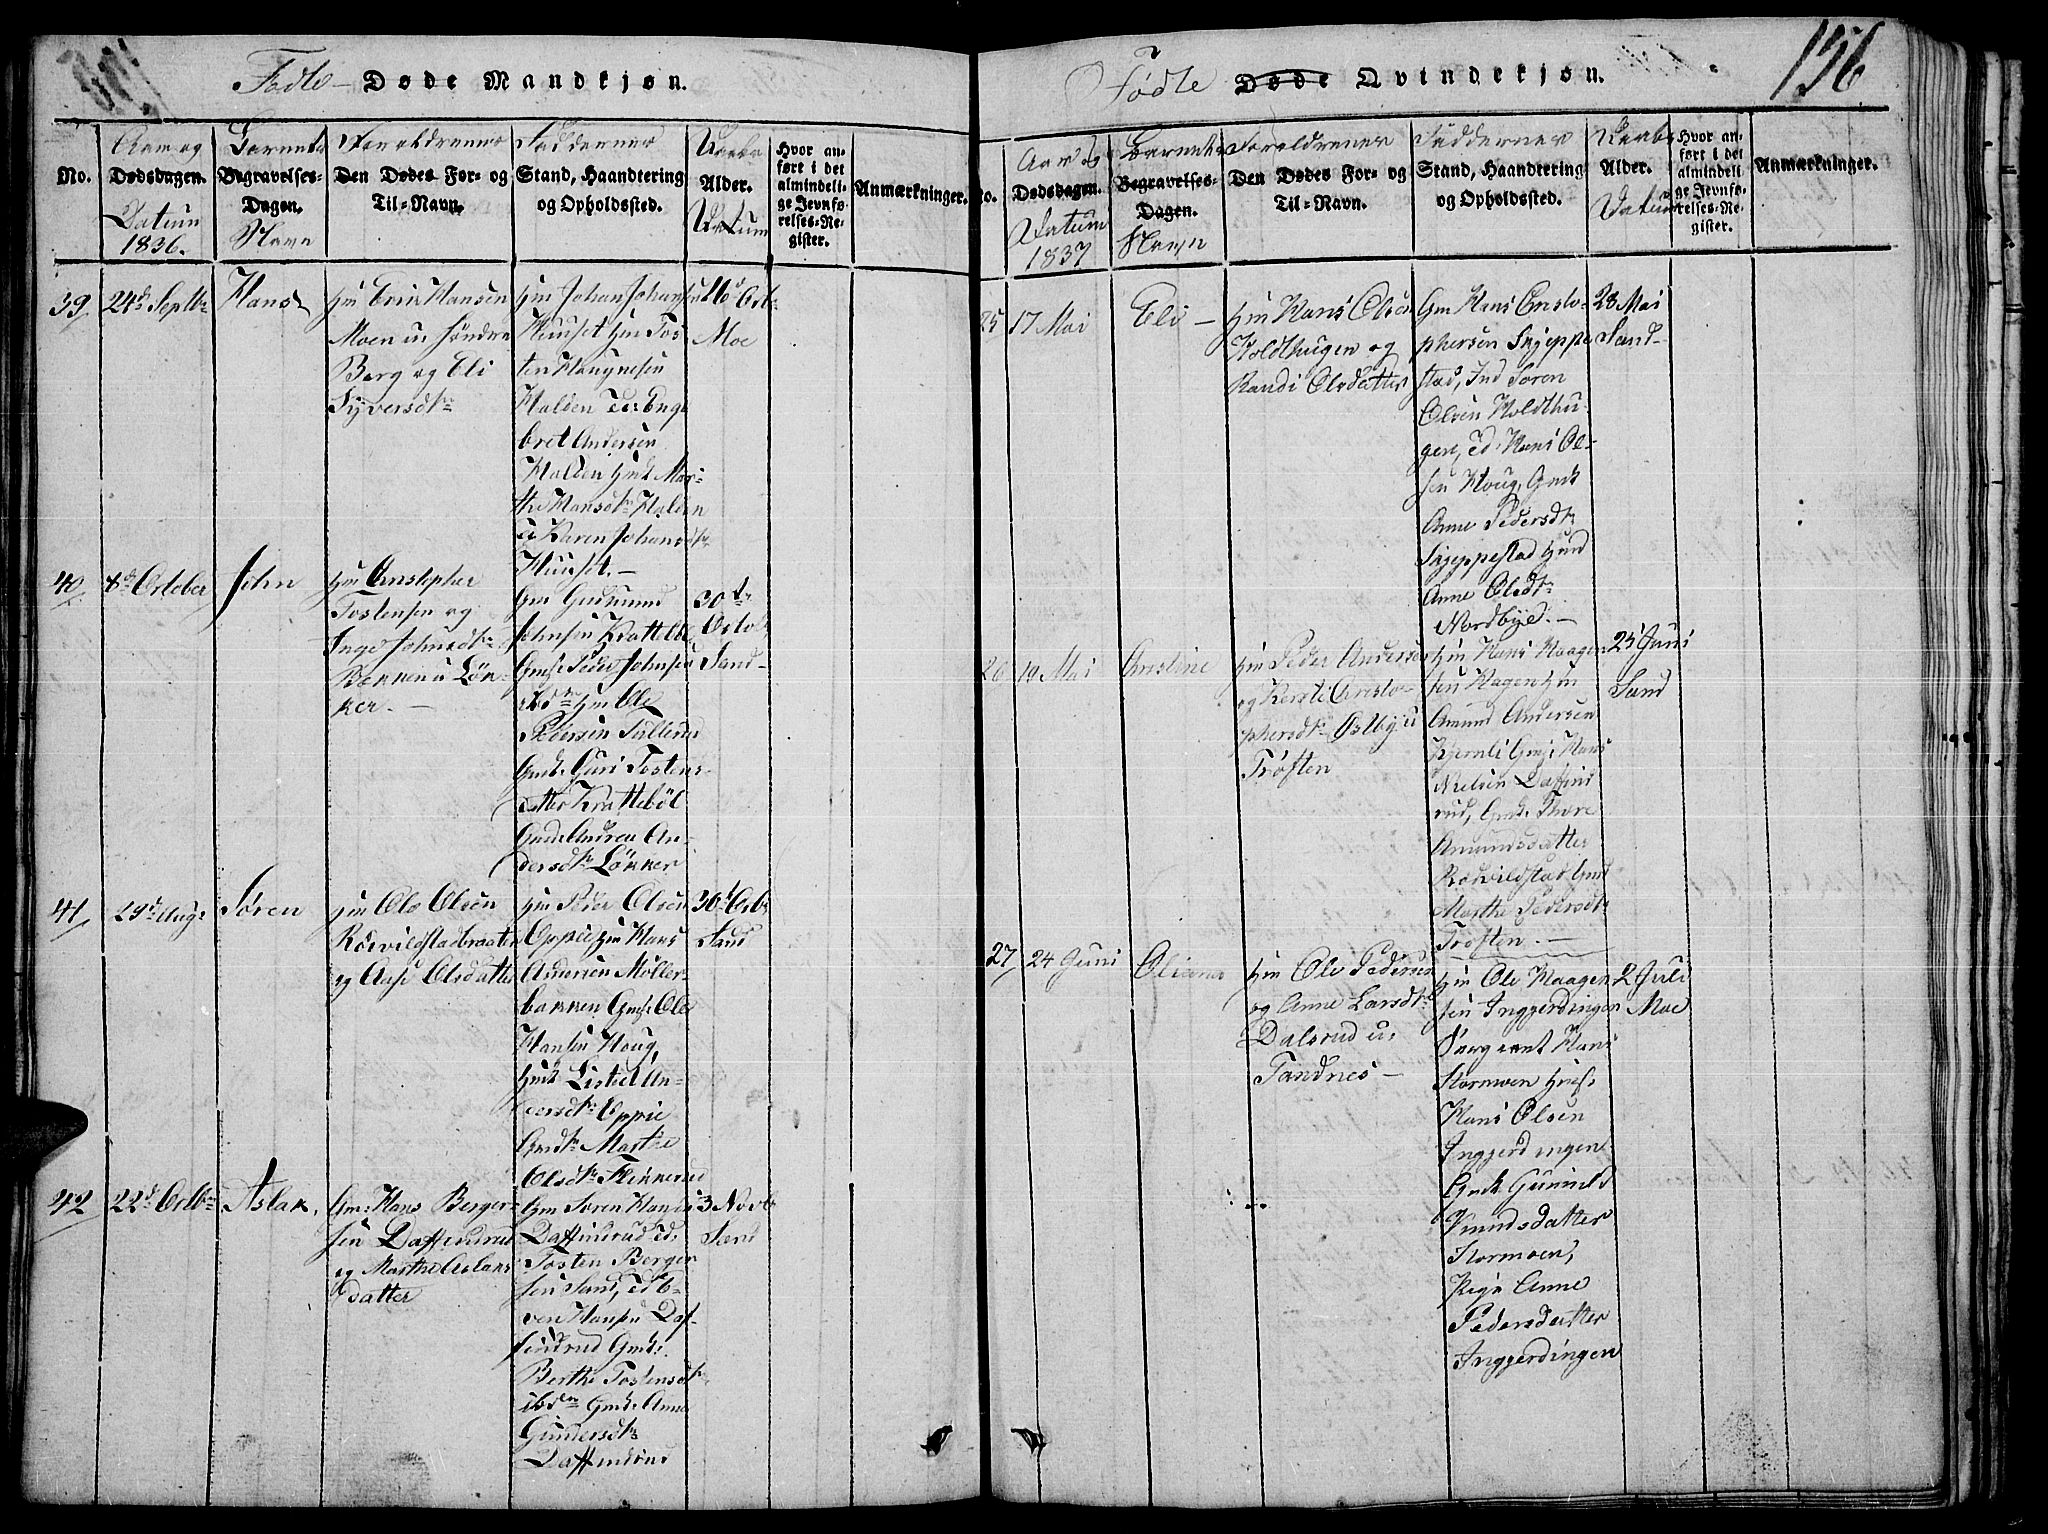 Fødte Døde Mandkjøn.
No.
Aar og
Dødsdagen.
Datum
1836.
Barnets
Begravelses-
Dagen.
Navn
Forældrenes
Den Dødes For- og
Til-Navn.
Faddernes
Stand, Haandtering
og Opholdssted.
Alder.
Datum
Hvor an-
ført i det
almindeli-
ge Jevnfø-
relses-Re-
gister.
Anmærkninger.
39
24d Septbr
Hans
Hm Erik Hansen
Moen u: søndre
Berg og Eli
Syversdtr
Hm Johan Johansen
Huuset Hm Tos-
ten Haagnesen
Halden Ed: Enge
bret Andersen
Halden Hmk Mar-
the Hansdtr Halden
Karen Johansdtr
Huuset.—
Moe
40
8d October
John
Hm Christopher
Tostensen og
Inge Johnsdtr
Bækken u Løk-
ker.—
Gm Gudmund
Johnsen Krattebøl
Gms: Peder Johnsen
Hm Ole
Pedersen Sullerud
Gmk: Guri Tostens-
datter Krattebøl
Gmk: Andrea An-
dersdtr Løkker
30te
Octo
Sand-
41
29de Aug:
Søren
Hm Ole Olsen
Rødvildstadbraaten
og Anse Olsdatter
Hm Peder Olsen
Oppie Hm Hans
Andersen Møller-
bakken Gms: Ole
Hansen Houg,
Hmk Lisbet An-
dersdtr Oppie
Gmktr Marthe
Olsdtr Flikkerud
30d Octb
Sand
42
22d Octbr
Aslak.
Gm: Hans Berger-
sen Daffindrud
og Marthe Aslaks
datter
Gm Søren Hansen
Daffindrud Ed:
Tosten Berger
sen Sand, Ed E-
ven Hansen Daf-
findrud Gmk:
Berthe Tostensdtr
ibden Gmk: Anne
Gundersdtr
Daffindrud
3 Novb
Sand
156
Fødte Døde Qvindekjøn.
No.
Aar og
Dødsdagen.
Datum
1837
Barnets
Begravelses-
Dagen.
Navn
Forældrenes
Den Dødes For- og
Til-Navn.
Faddernes
Stand, Haandtering
og Opholdssted.
Daabs
Alder.
Datum
Hvor an-
ført i det
almindeli-
ge Jevnfø-
relses-Re-
gister.
Anmærkninger.
25
17 Mai
Eli —
Hm Hans Olsen
Holdthugen og
Randi Olsdatter
Gm Hans Christo-
phersen Skjeppe
stad, Ind Søren
Olsen Holdthu-
gen, Ed: Hans Ol-
sen Houg, Gmk
Anne Pedersdtr
Skjeppestad Hmk
Anne Olsdtr
Nordbye.—
28 Mai
Sand-
26
19 Mai
Christine
Hm Peder Andersen
og Kersti Christo-
phersdtr Østbye u
Trøften
Hm Hans Haagen
sen Hagen Hm
Amund Andersen
Kjernli Gms: Hans
Nielsen Daffind
rud, Gmk: Thore
Amundsdatter
Rødvildstad Gmk
Marthe Pedersdtr
Trøften.—
25 Juni
Sand
27
24 Juni
Oliana
Hm Ole Pedersen
og Anne Larsdtr
Dalsrud u:
Tandnes —
Hm Ole Haagen
sen Inggjerdingen
Sergeant Hans
Stormoen Hms:
Hans Olsen
Inggjerdingen
Gmk Gunnild
Knudsdatter
Stormoen,
Pige Anne
Pedersdatter
Inggjerdingen
2 Juli
Moe